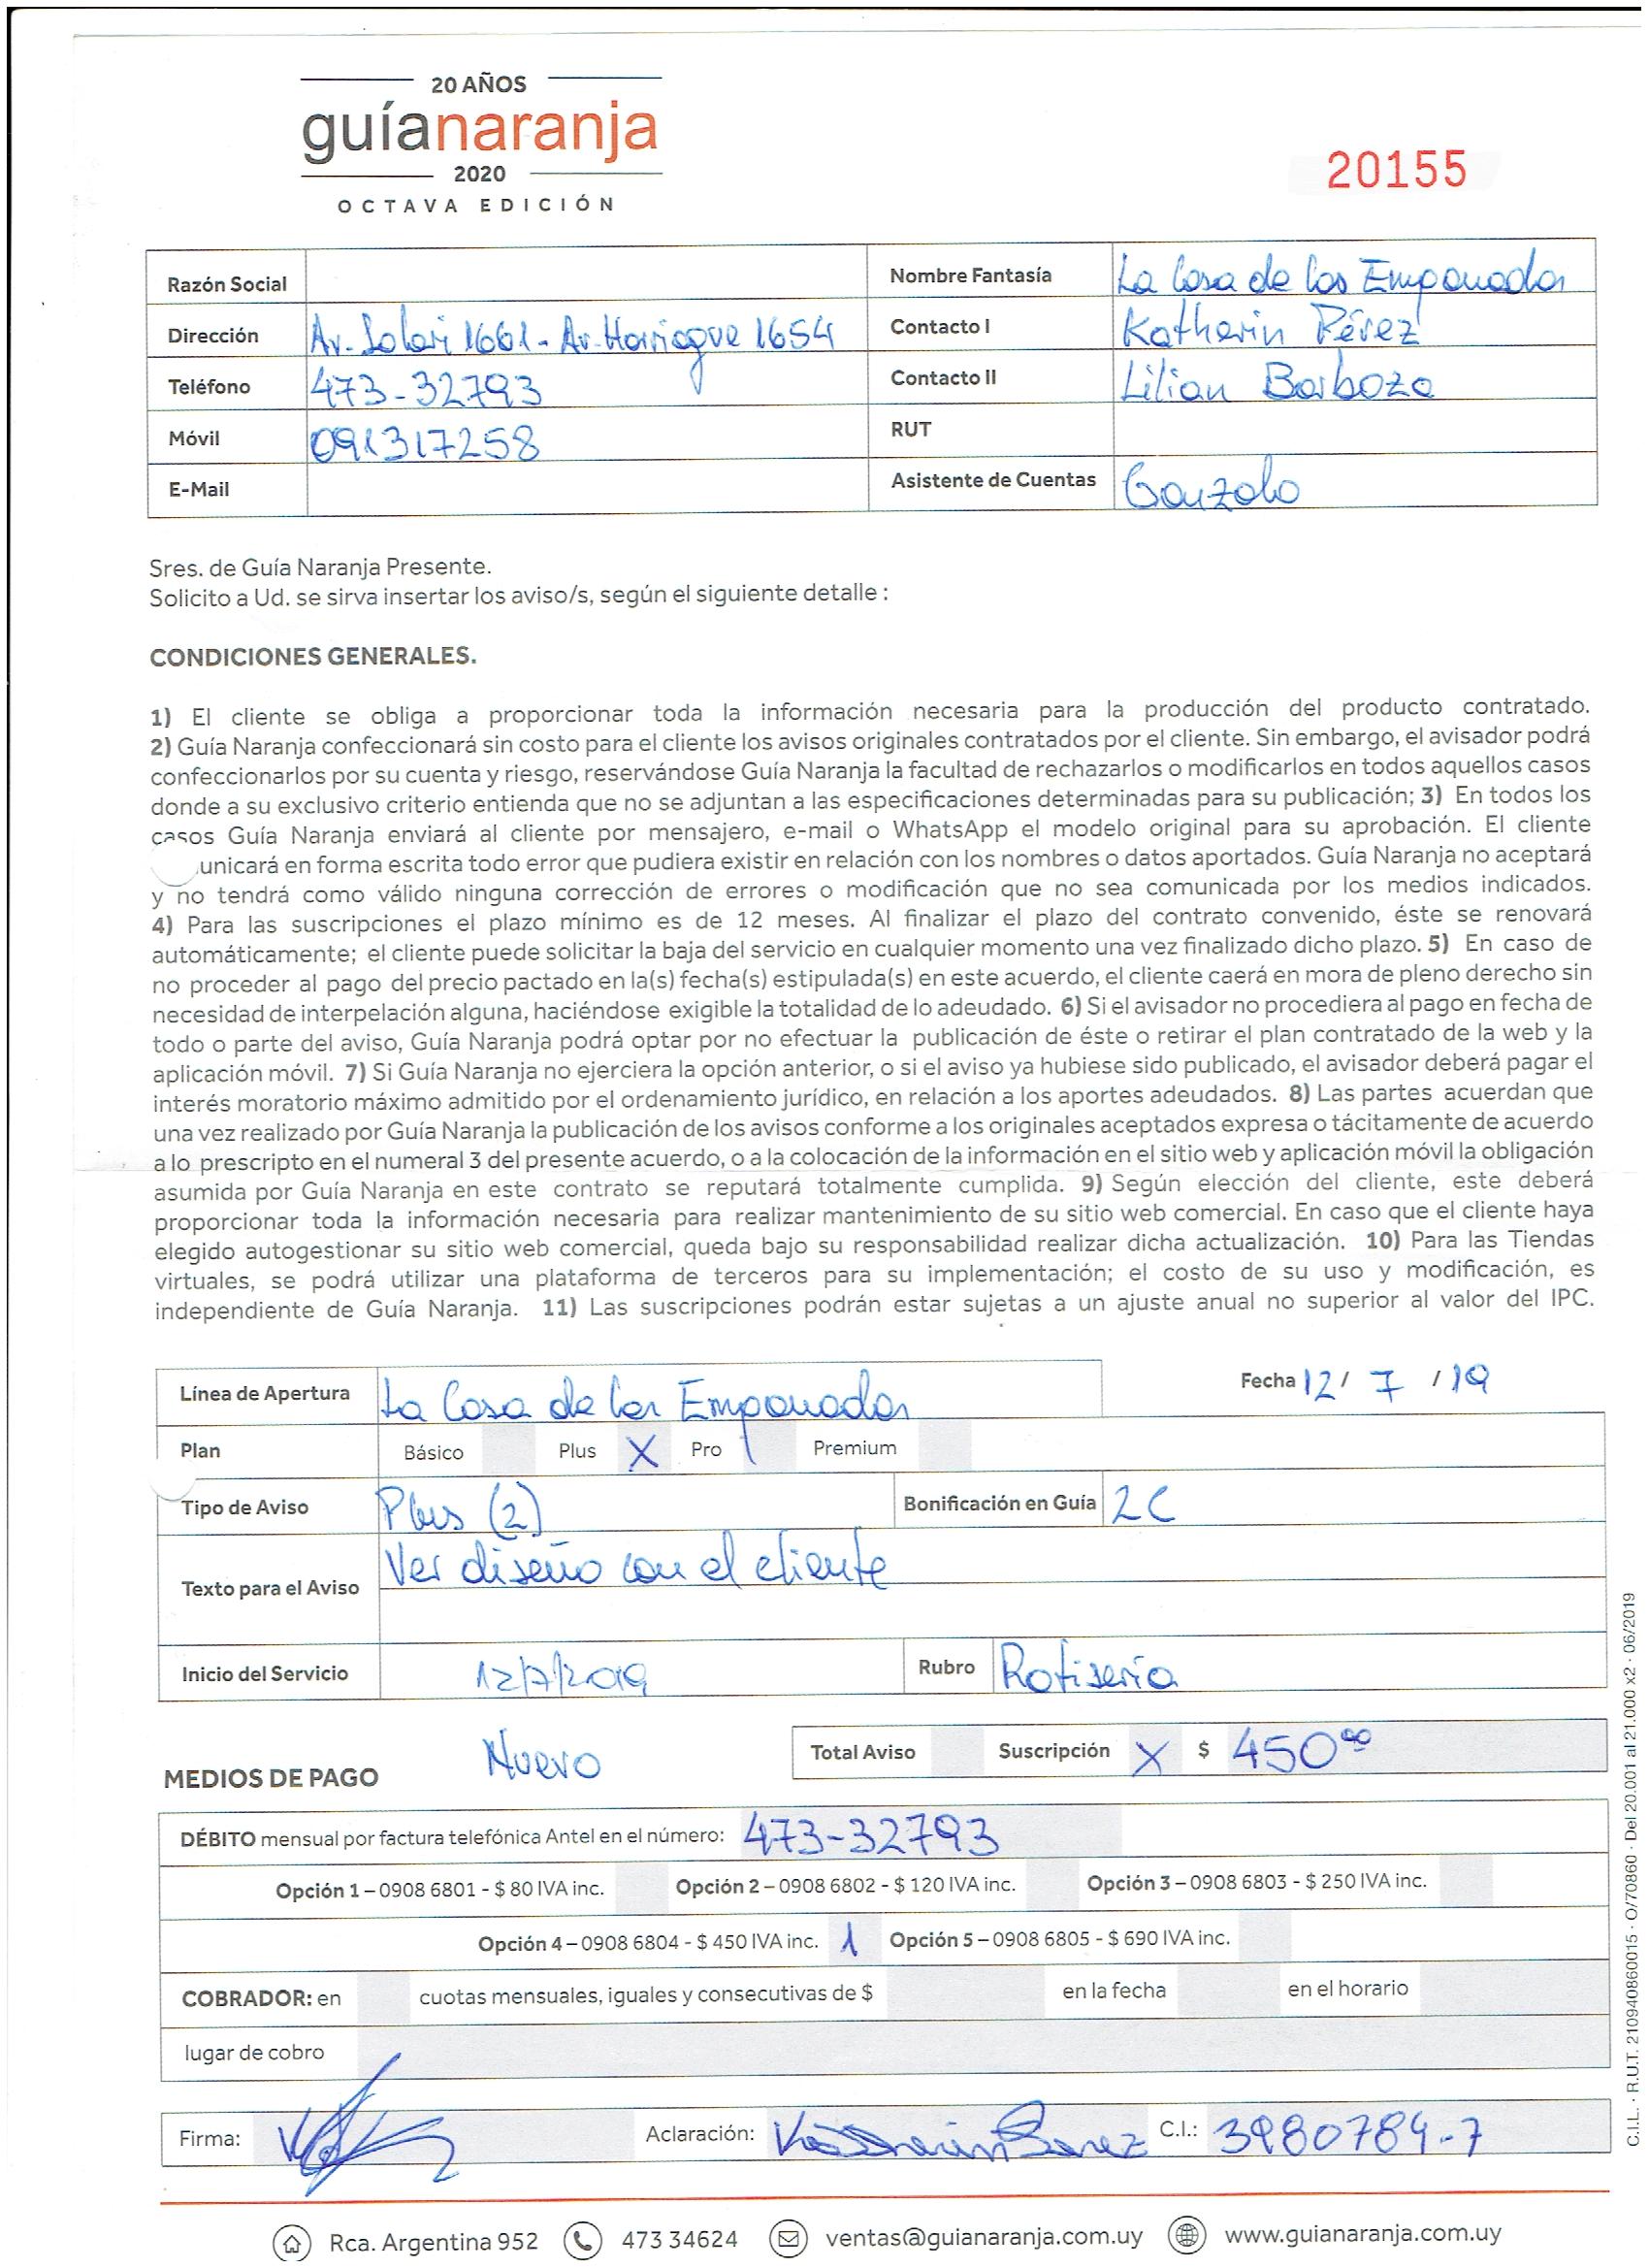 20 AÑOS
guíanaranja
2020
OCTAVA EDICIÓN
20155
Razón Social
Nombre Fantasía La Casa de las Empanadas
Dirección Av. Solari 1661 - Av. Harriague 1654
Contacto I Katherin Pérez
Teléfono 473-32793
Contacto II Lilian Barboza
Móvil 091317258
RUT
E-Mail
Asistente de Cuentas Gonzalo
Sres. de Guía Naranja Presente.
Solicito a Ud. se sirva insertar los aviso/s, según el siguiente detalle :
CONDICIONES GENERALES.
1) El cliente se obliga a proporcionar toda la información necesaria para la producción del producto contratado.
2) Guía Naranja confeccionará sin costo para el cliente los avisos originales contratados por el cliente. Sin embargo, el avisador podrá
confeccionarlos por su cuenta y riesgo, reservándose Guía Naranja la facultad de rechazarlos o modificarlos en todos aquellos casos
donde a su exclusivo criterio entienda que no se adjuntan a las especificaciones determinadas para su publicación; 3) En todos los
casos Guía Naranja enviará al cliente por mensajero, e-mail o WhatsApp el modelo original para su aprobación. El cliente
unicará en forma escrita todo error que pudiera existir en relación con los nombres o datos aportados. Guía Naranja no aceptará
y no tendrá como válido ninguna corrección de errores o modificación que no sea comunicada por los medios indicados.
4) Para las suscripciones el plazo mínimo es de 12 meses. Al finalizar el plazo del contrato convenido, éste se renovará
automáticamente; el cliente puede solicitar la baja del servicio en cualquier momento una vez finalizado dicho plazo. 5) En caso de
no proceder al pago del precio pactado en la(s) fecha(s) estipulada(s) en este acuerdo, el cliente caerá en mora de pleno derecho sin
necesidad de interpelación alguna, haciéndose exigible la totalidad de lo adeudado. 6) Si el avisador no procediera al pago en fecha de
todo o parte del aviso, Guía Naranja podrá optar por no efectuar la publicación de éste o retirar el plan contratado de la web y la
aplicación móvil. 7) Si Guía Naranja no ejerciera la opción anterior, o si el aviso ya hubiese sido publicado, el avisador deberá pagar el
interés moratorio máximo admitido por el ordenamiento jurídico, en relación a los aportes adeudados. 8) Las partes acuerdan que
una vez realizado por Guía Naranja la publicación de los avisos conforme a los originales aceptados expresa o tácitamente de acuerdo
a lo prescripto en el numeral 3 del presente acuerdo, o a la colocación de la información en el sitio web y aplicación móvil la obligación
asumida por Guía Naranja en este contrato se reputará totalmente cumplida. 9) Según elección del cliente, este deberá
proporcionar toda la información necesaria para realizar mantenimiento de su sitio web comercial. En caso que el cliente haya
elegido autogestionar su sitio web comercial, queda bajo su responsabilidad realizar dicha actualización. 10) Para las Tiendas
virtuales, se podrá utilizar una plataforma de terceros para su implementación; el costo de su uso y modificación, es
independiente de Guía Naranja. 11) Las suscripciones podrán estar sujetas a un ajuste anual no superior al valor del IPC.
Línea de Apertura La Casa de las Empanadas
Fecha 12/ 7 /19
Plan Básico Plus X Pro Premium
Tipo de Aviso Plus (2) Bonificación en Guía 2C
Texto para el Aviso Ver diseño con el cliente
Inicio del Servicio 12/7/2019 Rubro Rotisería
MEDIOS DE PAGO Nuevo
Total Aviso Suscripción X $ 450⁰⁰
DÉBITO mensual por factura telefónica Antel en el número: 473-32793
Opción 1 – 0908 6801 - $ 80 IVA inc. Opción 2 – 0908 6802 - $ 120 IVA inc. Opción 3 – 0908 6803 - $ 250 IVA inc.
Opción 4 – 0908 6804 - $ 450 IVA inc. 1 Opción 5 – 0908 6805 - $ 690 IVA inc.
COBRADOR: en cuotas mensuales, iguales y consecutivas de $ en la fecha en el horario
lugar de cobro
Firma: Aclaración: C.I.: 3980784-7
Rca. Argentina 952 473 34624 ventas@guianaranja.com.uy www.guianaranja.com.uy
C.I.L. · R.U.T. 210940860015 · O/70860 · Del 20.001 al 21.000 x2 · 06/2019